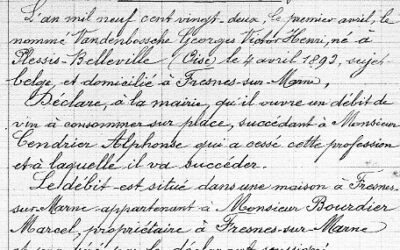 L'an mil neuf cent vingt-deux, le premier avril, le
nommé Vandenbossche Georges Victor Henri, né à
Plessis-Belleville (Oise) le 4 avril 1892, sujet
belge, et domicilié à Fresnes-sur-Marne,
Déclare, à la mairie, qu'il ouvre un débit de
vin à consommer sur place, succédant à Monsieur
Cendrier Alphonse qui a cessé cette profession
et à laquelle il va succéder.
Le débit est situé dans une maison à Fresnes-
sur-Marne appartenant à Monsieur Bourdier
Marcel, propriétaire à Fresnes-sur-Marne